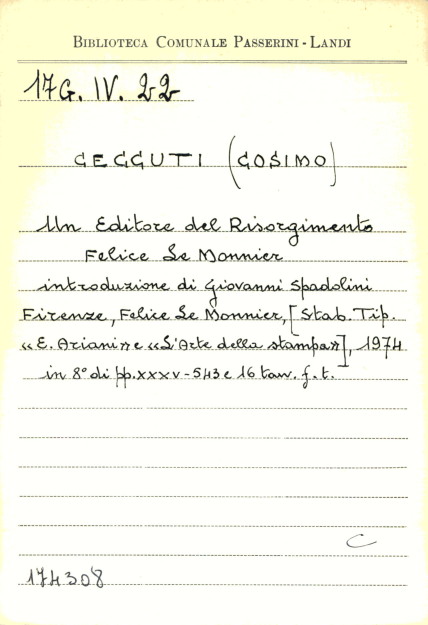 BIBLIOTECA COMUNALE PASSERINI - LANDI
17G. IV. 22
CECCUTI (COSIMO)
Un Editore del Risorgimento
Felice Le Monnier
introduzione di Giovanni Spadolini
Firenze, Felice Le Monnier, [Stab. Tip.
«E. Ariani» e «L'Arte della stampa»], 1974
in 8° di pp. XXXV-543 e 16 tav. f. t.
C
174308